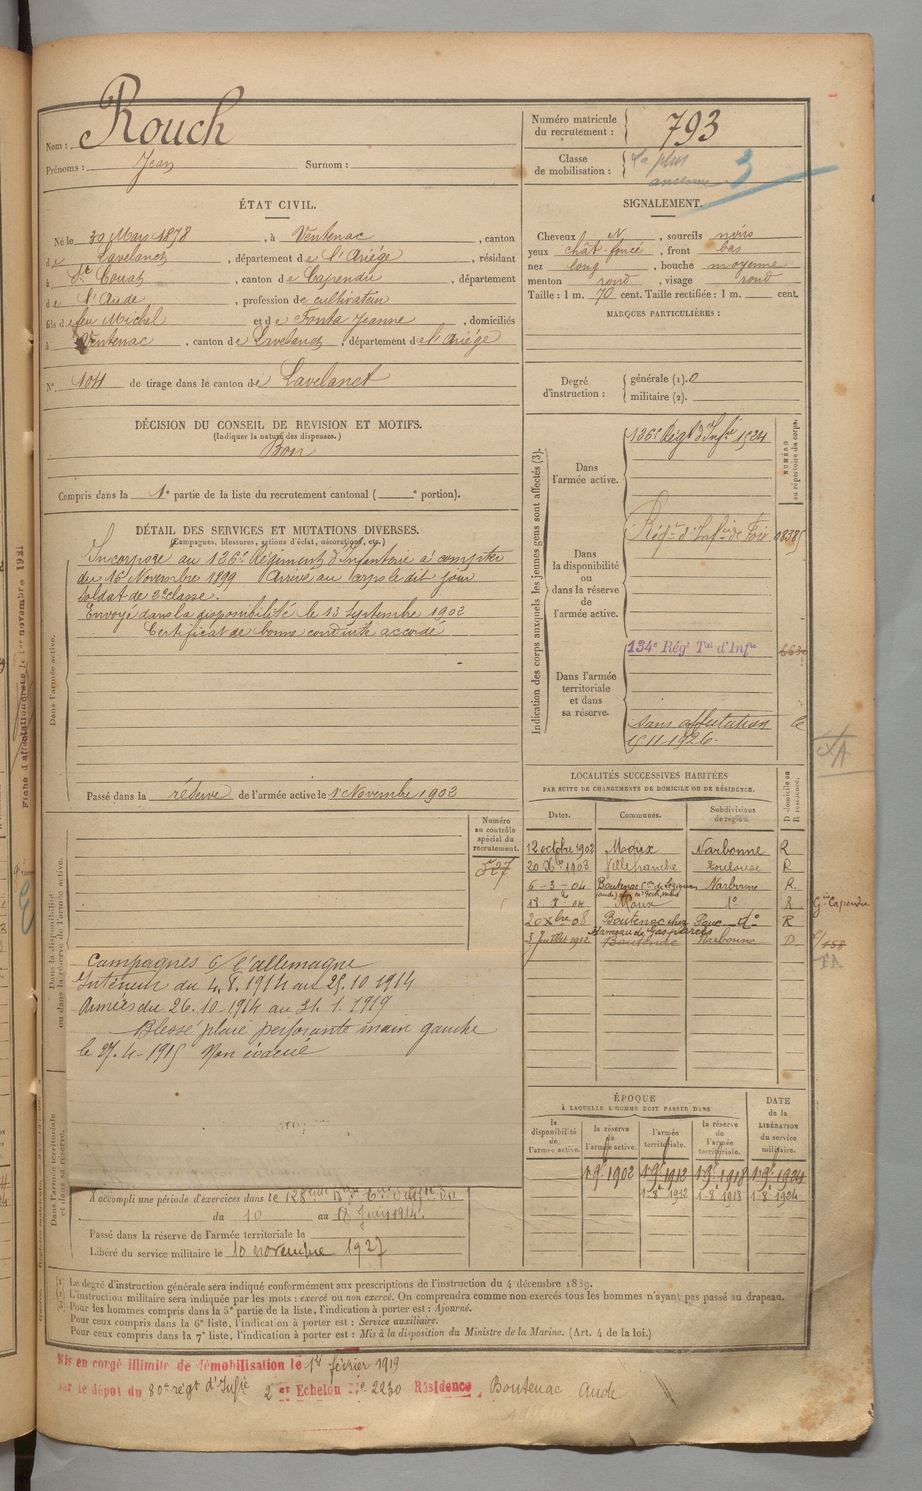 Nom : Rouch
Prénoms : Jean Surnom :
Numéro matricule du recrutement : 793
Classe de mobilisation : La plus ancienne 3
ÉTAT CIVIL.
Né le 30 Mars 1878, à Ventenac, canton
de Lavelanet, département de l'Ariége, résidant
à Ste Couat, canton de Capendu, département
de l'Aude, profession de cultivateur
fils de feu Michel et de Fonta Jeanne, domiciliés
à Ventenac, canton de Lavelanet, département de l'Ariége
N° 104 de tirage dans le canton de Lavelanet
SIGNALEMENT.
Cheveux N, sourcils noirs
yeux chât. foncé, front bas
nez long, bouche moyenne
menton rond, visage rond
Taille : 1 m. 70 cent. Taille rectifiée : 1 m. cent.
MARQUES PARTICULIÈRES :
Degré d'instruction : générale (1). 0
militaire (2).
DÉCISION DU CONSEIL DE REVISION ET MOTIFS.
(Indiquer la nature des dispenses.)
Bon
Compris dans la 1e partie de la liste du recrutement cantonal ( e portion).
DÉTAIL DES SERVICES ET MUTATIONS DIVERSES.
(Campagnes, blessures, actions d'éclat, décorations, etc.)
Incorporé au 136e Régiment d'Infanterie à compter
du 16 Novembre 1899 Arrivé au corps le dit jour
soldat de 2e classe.
Envoyé dans la disponibilité le 13 Septembre 1902
Certificat de bonne conduite accordé
Dans l'armée active.
Passé dans la réserve de l'armée active le 1 Novembre 1902
Numéro au contrôle spécial du recrutement.
527
Dans la disponibilité ou dans la réserve de l'armée active.
Campagnes c/ l'allemagne
Intérieur du 4.8.1914 au 25.10.1914
Armées du 26.10.1914 au 31.1.1919
Blessé plaie perforante main gauche
le 27.4.1915 Non évacué
Dans l'armée territoriale et dans sa réserve.
A accompli une période d'exercices dans le 128ème
du 10 au 18 Juin 1914.
Passé dans la réserve de l'armée territoriale le
Libéré du service militaire le 10 novembre 1927
Indication des corps auxquels les jeunes gens sont affectés (3).
NUMÉRO au répertoire du corps.
Dans l'armée active.
136e Régt d'Infie 1524
Dans la disponibilité ou dans la réserve de l'armée active.
Régt d'Infie de Foix
134e Régt Tal d'Infie
Dans l'armée territoriale et dans sa réserve.
Sans affectation
15.11.1926.
LOCALITÉS SUCCESSIVES HABITÉES
PAR SUITE DE CHANGEMENTS DE DOMICILE OU DE RÉSIDENCE.
Dates. Communes. Subdivisions de région. D domicile ou R résidence.
12 octobre 1902 Moux Narbonne R
20 Xbre 1903 Villefranche Toulouse R
6-3-04 Boutenac Narbonne R.
Moux do R
20 Xbre 08 Boutenac chez do R
3 Juillet 1912 Hameau de Gasparets Boutenac Narbonne D
ÉPOQUE
À LAQUELLE L'HOMME DOIT PASSER DANS
la disponibilité de l'armée active.
la réserve de l'armée active.
l'armée territoriale.
la réserve de l'armée territoriale.
DATE de la LIBÉRATION du service militaire.
1-9bre 1902 1-9bre 1912 1-9bre 1918 1-9bre 1924
1-8e 1912 1-8e 1918 1-8e 1924
Le degré d'instruction générale sera indiqué conformément aux prescriptions de l'instruction du 4 décembre 1889.
L'instruction militaire sera indiquée par les mots : exercé ou non exercé. On comprendra comme non exercés tous les hommes n'ayant pas passé au drapeau.
Pour les hommes compris dans la 5e partie de la liste, l'indication à porter est : Ajourné.
Pour ceux compris dans la 6e liste, l'indication à porter est : Service auxiliaire.
Pour ceux compris dans la 7e liste, l'indication à porter est : Mis à la disposition du Ministre de la Marine. (Art. 4 de la loi.)
Mis en congé illimité de démobilisation le 1er février 1919
par le dépôt du 80e régt d'Infie 2e Echelon No 2230 Résidence, Boutenac Aude